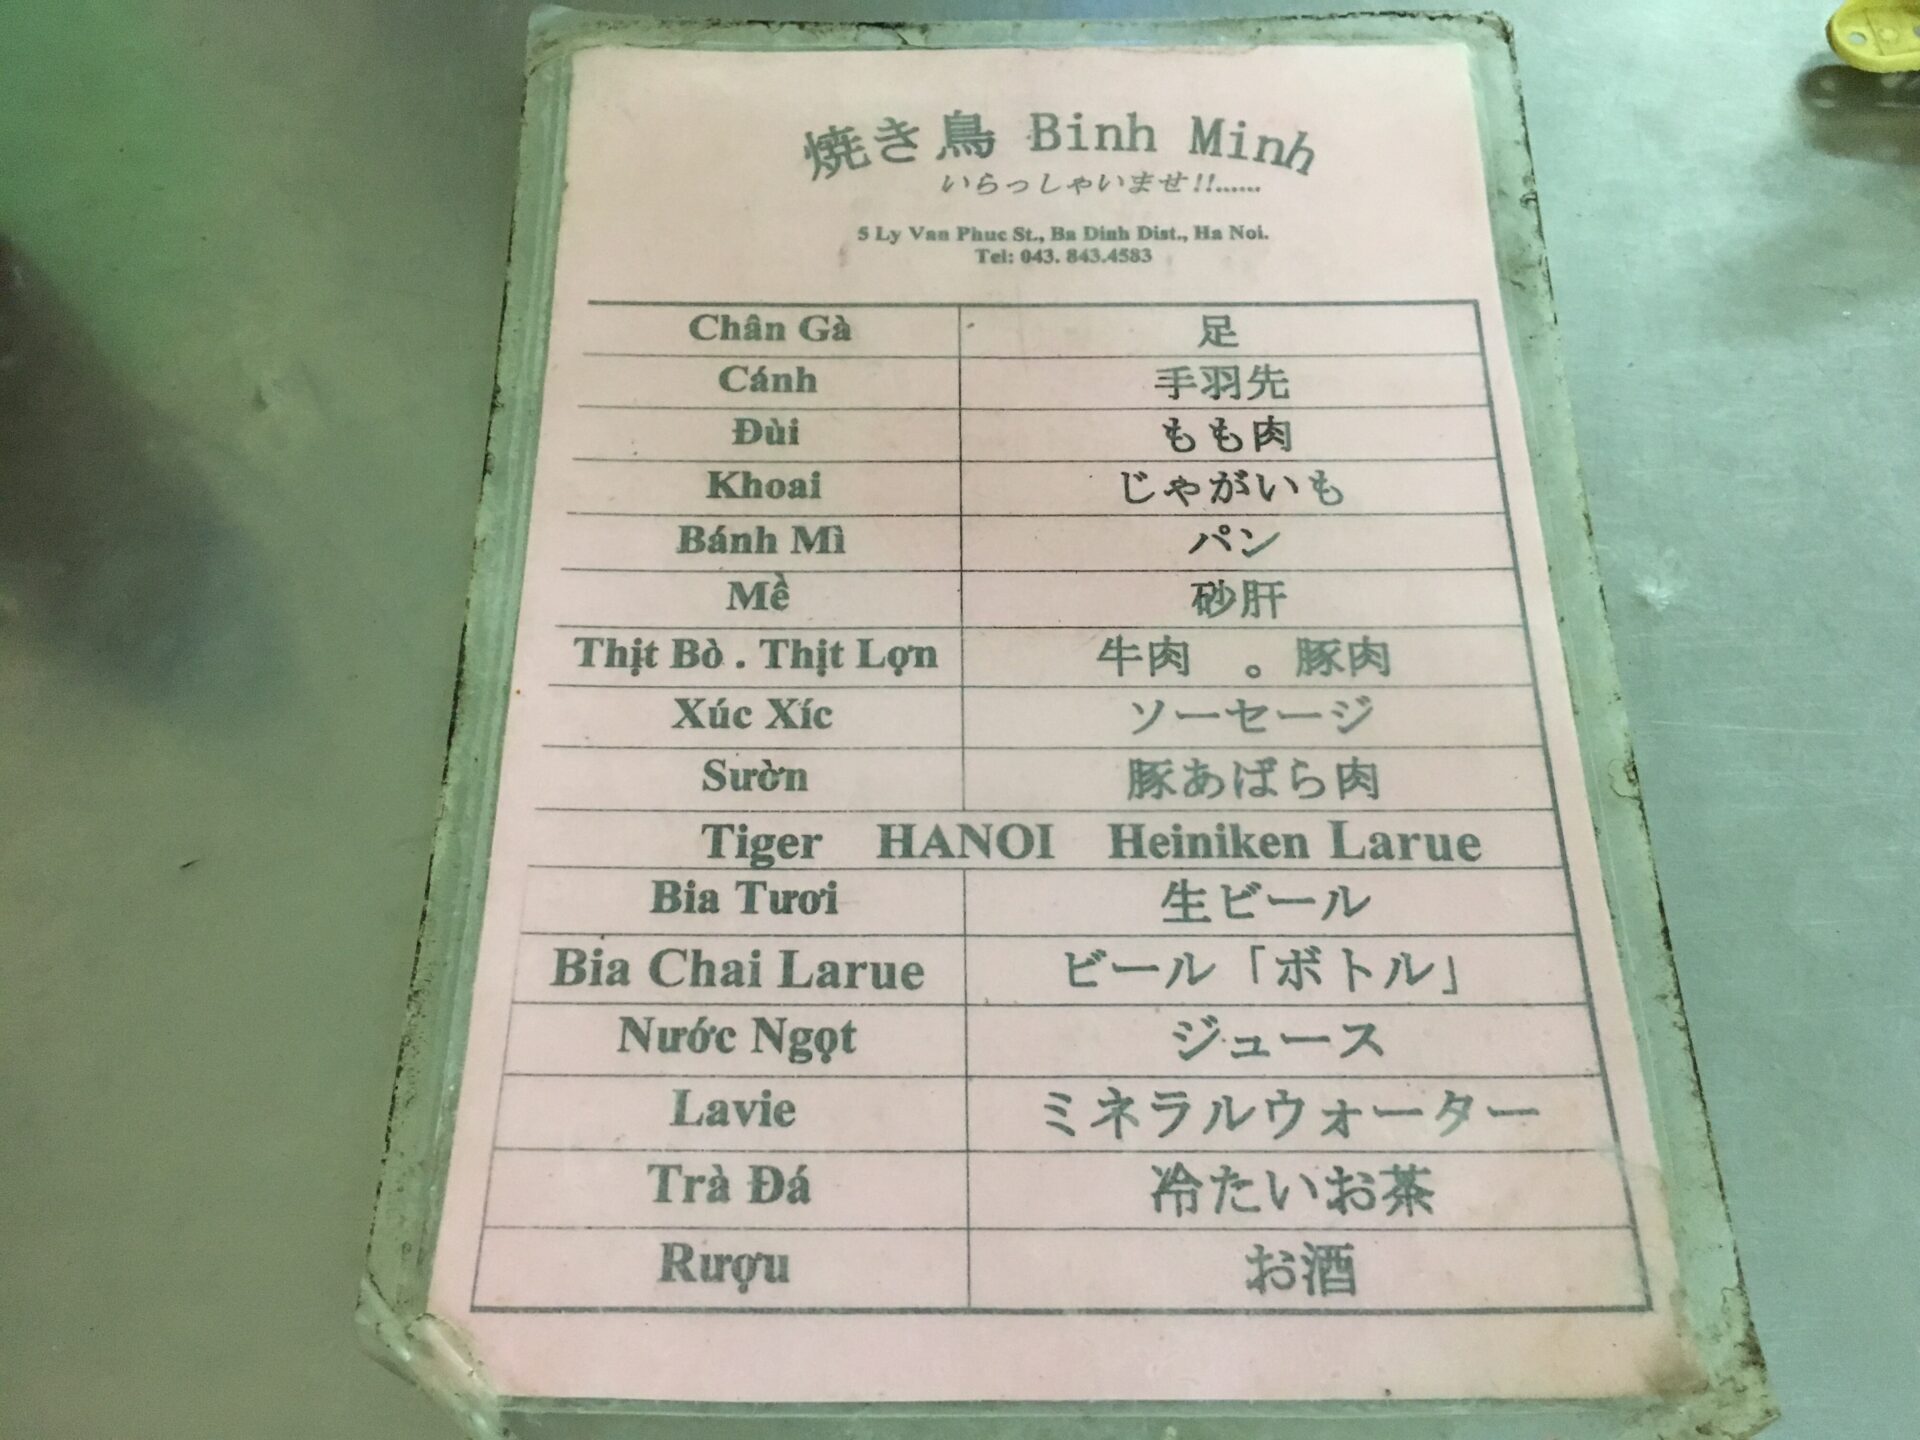 焼き鳥 Binh Minh
いらっしゃいませ!!......
5 Ly Van Phuc St., Ba Dinh Dist., Ha Noi.
Tel: 043. 843.4583
Chân Gà 足
Cánh 手羽先
Đùi もも肉
Khoai じゃがいも
Bánh Mì パン
Mề 砂肝
Thịt Bò . Thịt Lợn 牛肉 。豚肉
Xúc Xíc ソーセージ
Sườn 豚あばら肉
Tiger HANOI Heiniken Larue
Bia Tươi 生ビール
Bia Chai Larue ビール「ボトル」
Nước Ngọt ジュース
Lavie ミネラルウォーター
Trà Đá 冷たいお茶
Rượu お酒